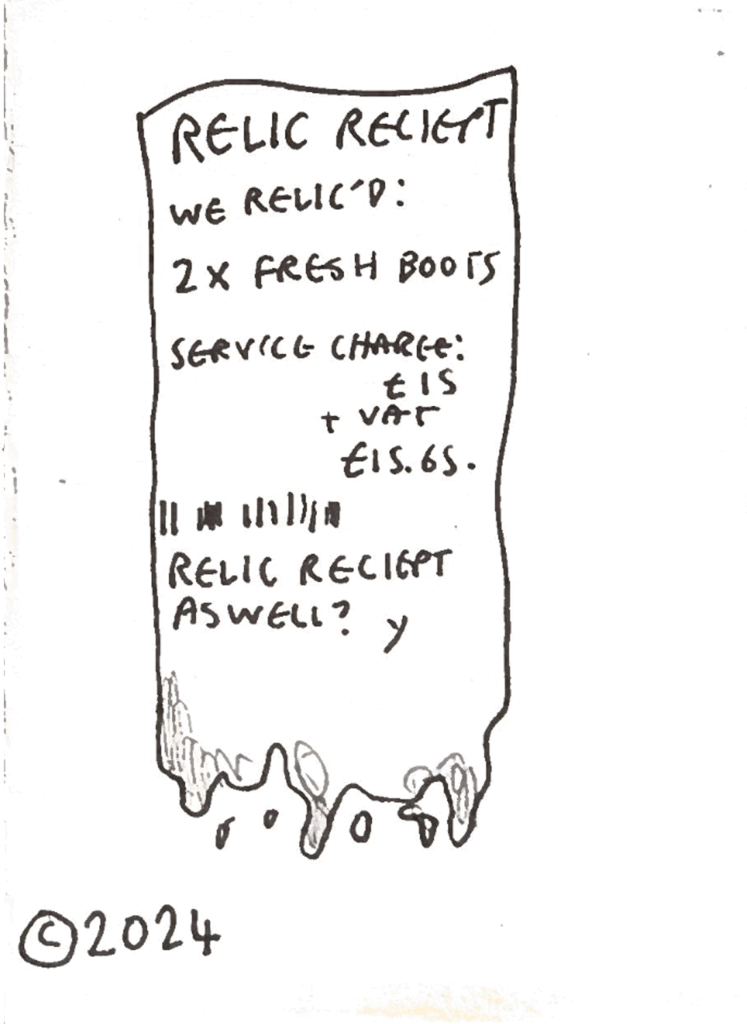 RELIC RECIEPT
WE RELIC'D:
2 X FRESH BOOTS
SERVICE CHARGE:
£15
+ VAT
£15.65.
RELIC RECIEPT
ASWELL? Y
©2024